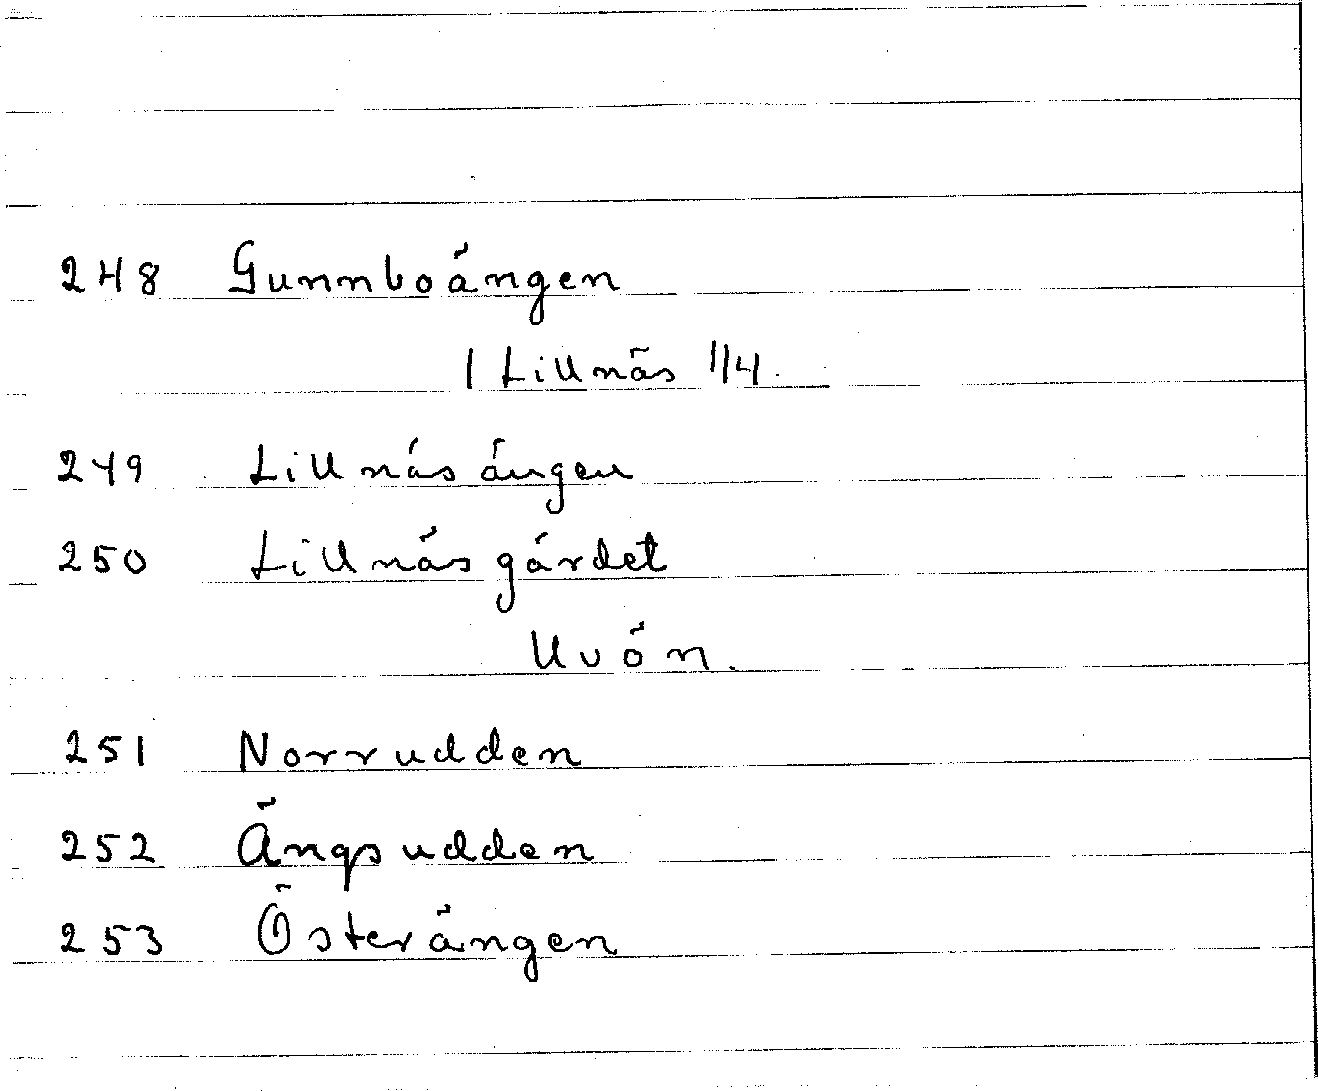 248 Gunnboängen
1 Lillnäs 1/4.
249 Lillnäsängen
250 Lillnäsgärdet
Uvön.
251 Norrudden
252 Ängsudden
253 Österängen